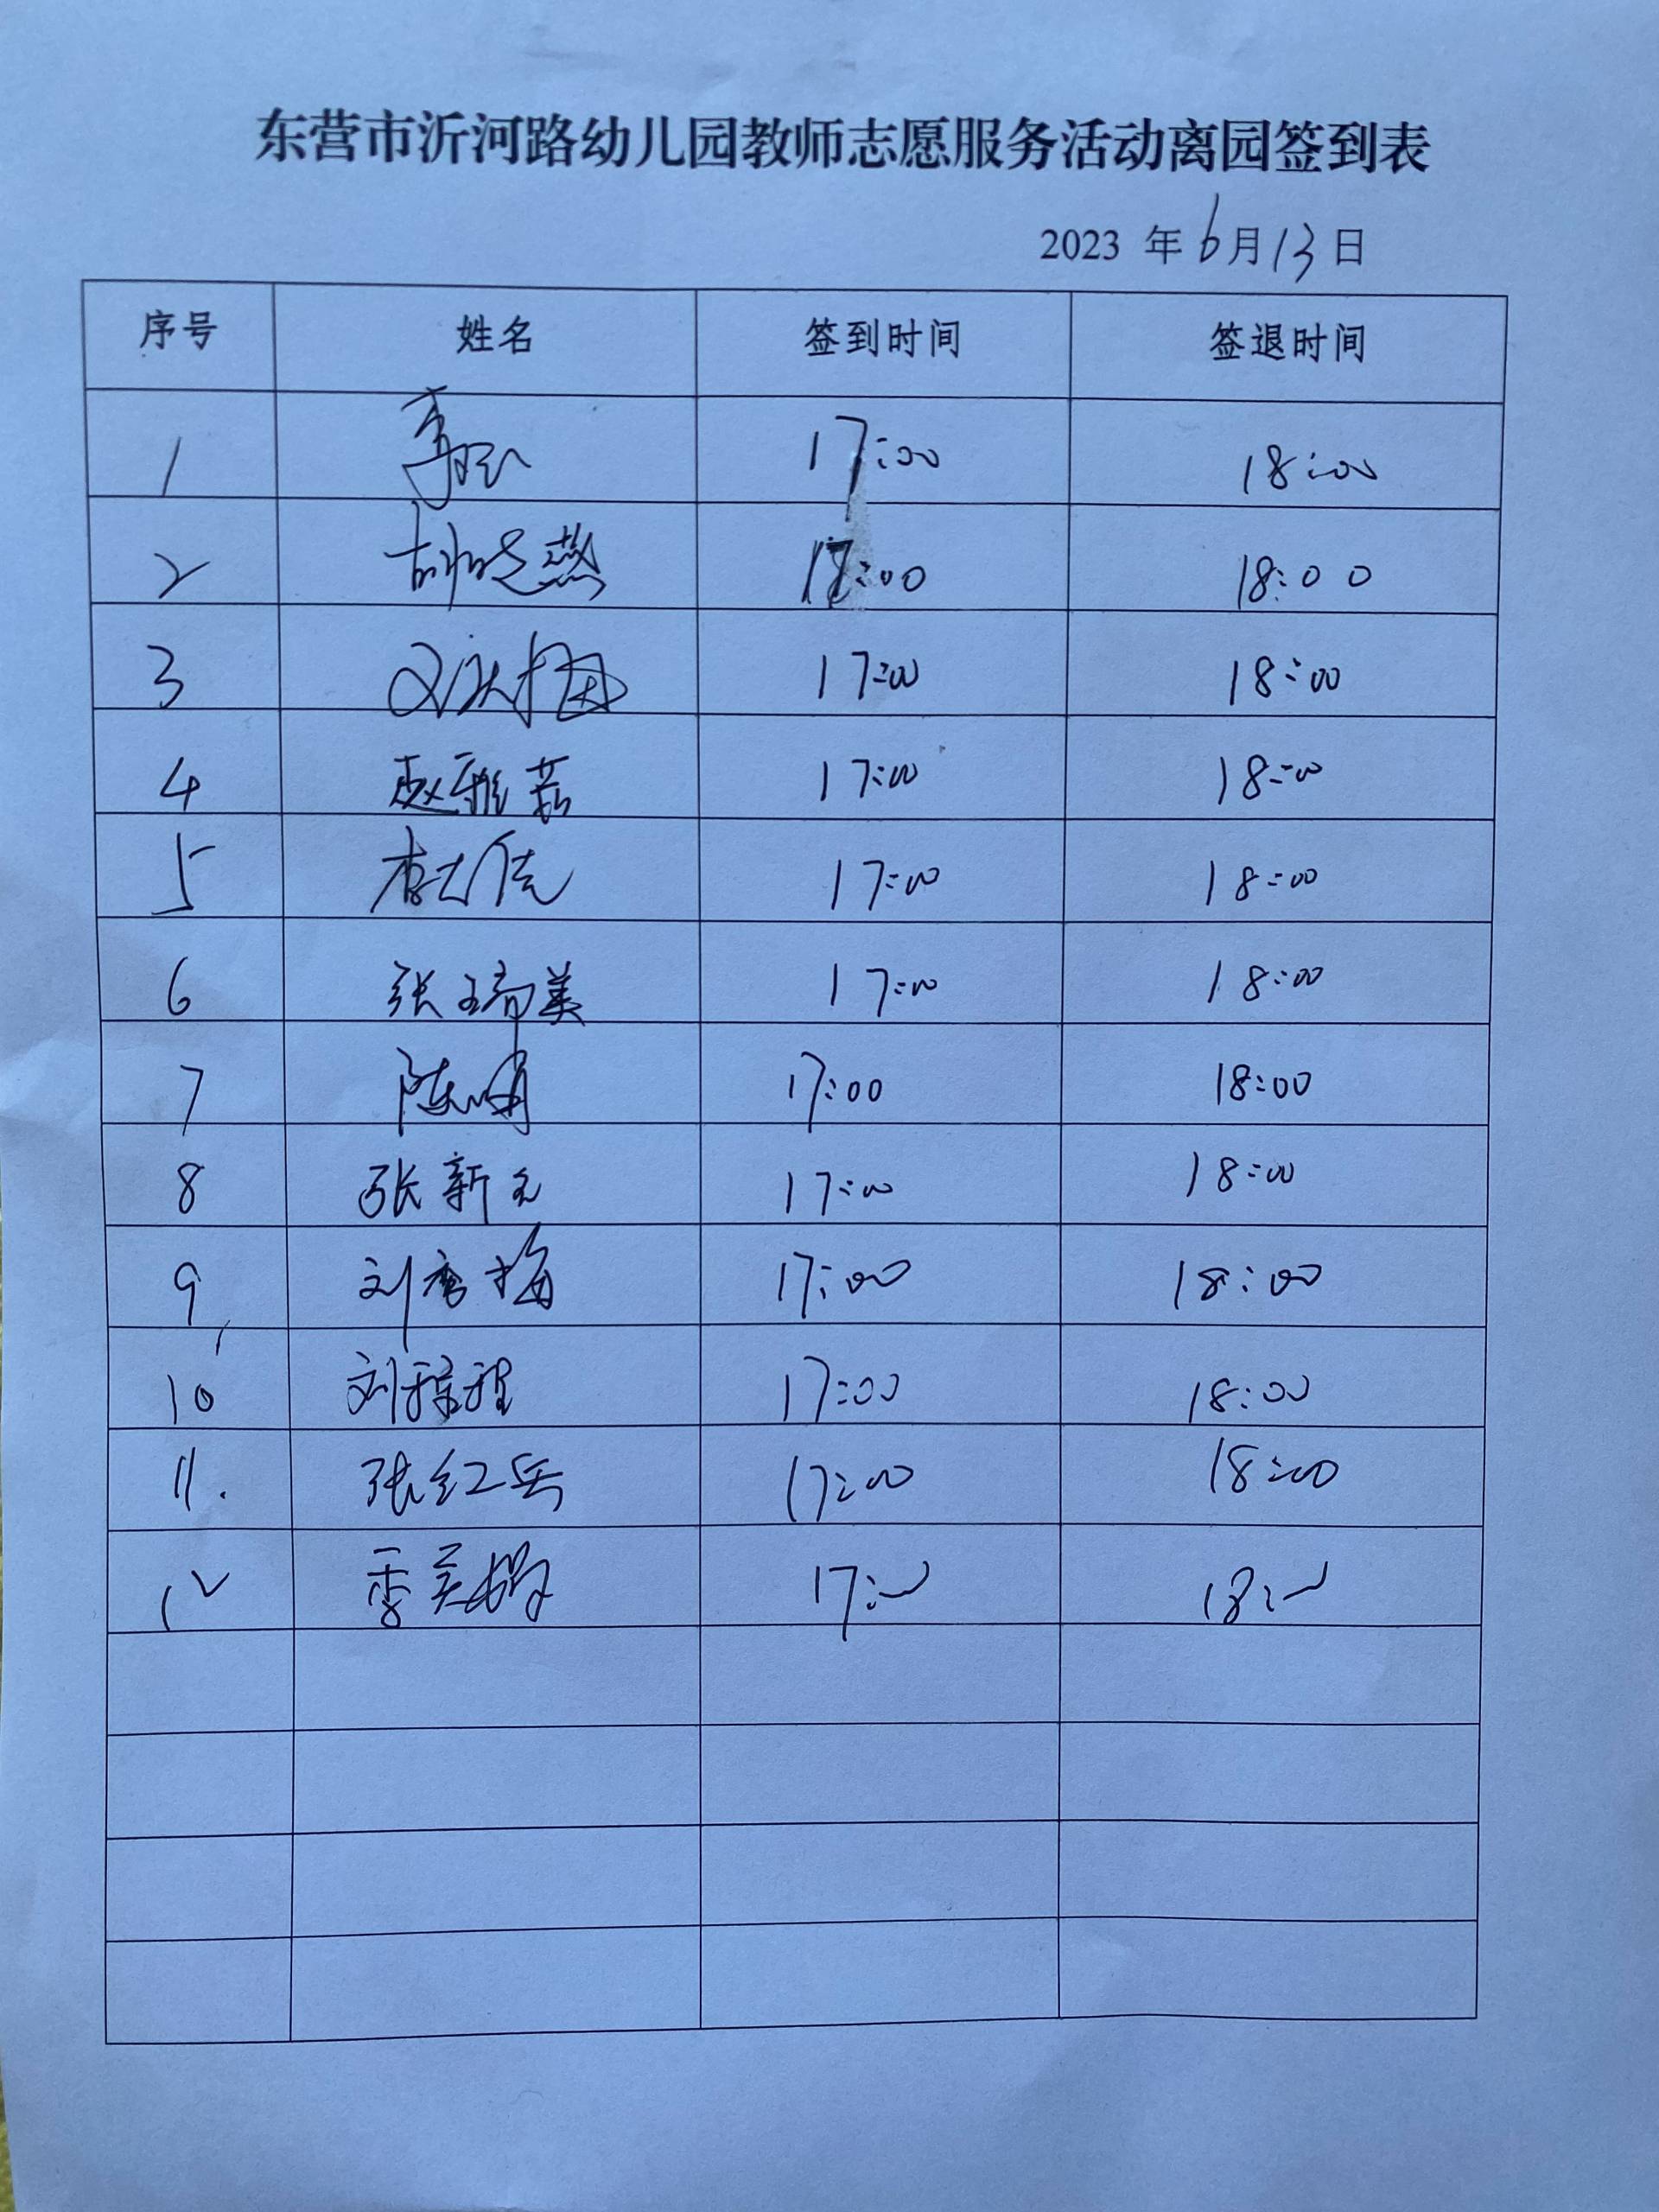 东营市沂河路幼儿园教师志愿服务活动离园签到表
2023 年 6月13日
序号 姓名 签到时间 签退时间
1 17:00 18:00
2 胡晓燕 17:00 18:00
3 17:00 18:00
4 赵雅茹 17:00 18:00
5 17:00 18:00
6 张瑞美 17:00 18:00
7 陈娟 17:00 18:00
8 张新玉 17:00 18:00
9 刘秀梅 17:00 18:00
10 17:00 18:00
11. 张红兵 17:00 18:00
12 17:00 18:00